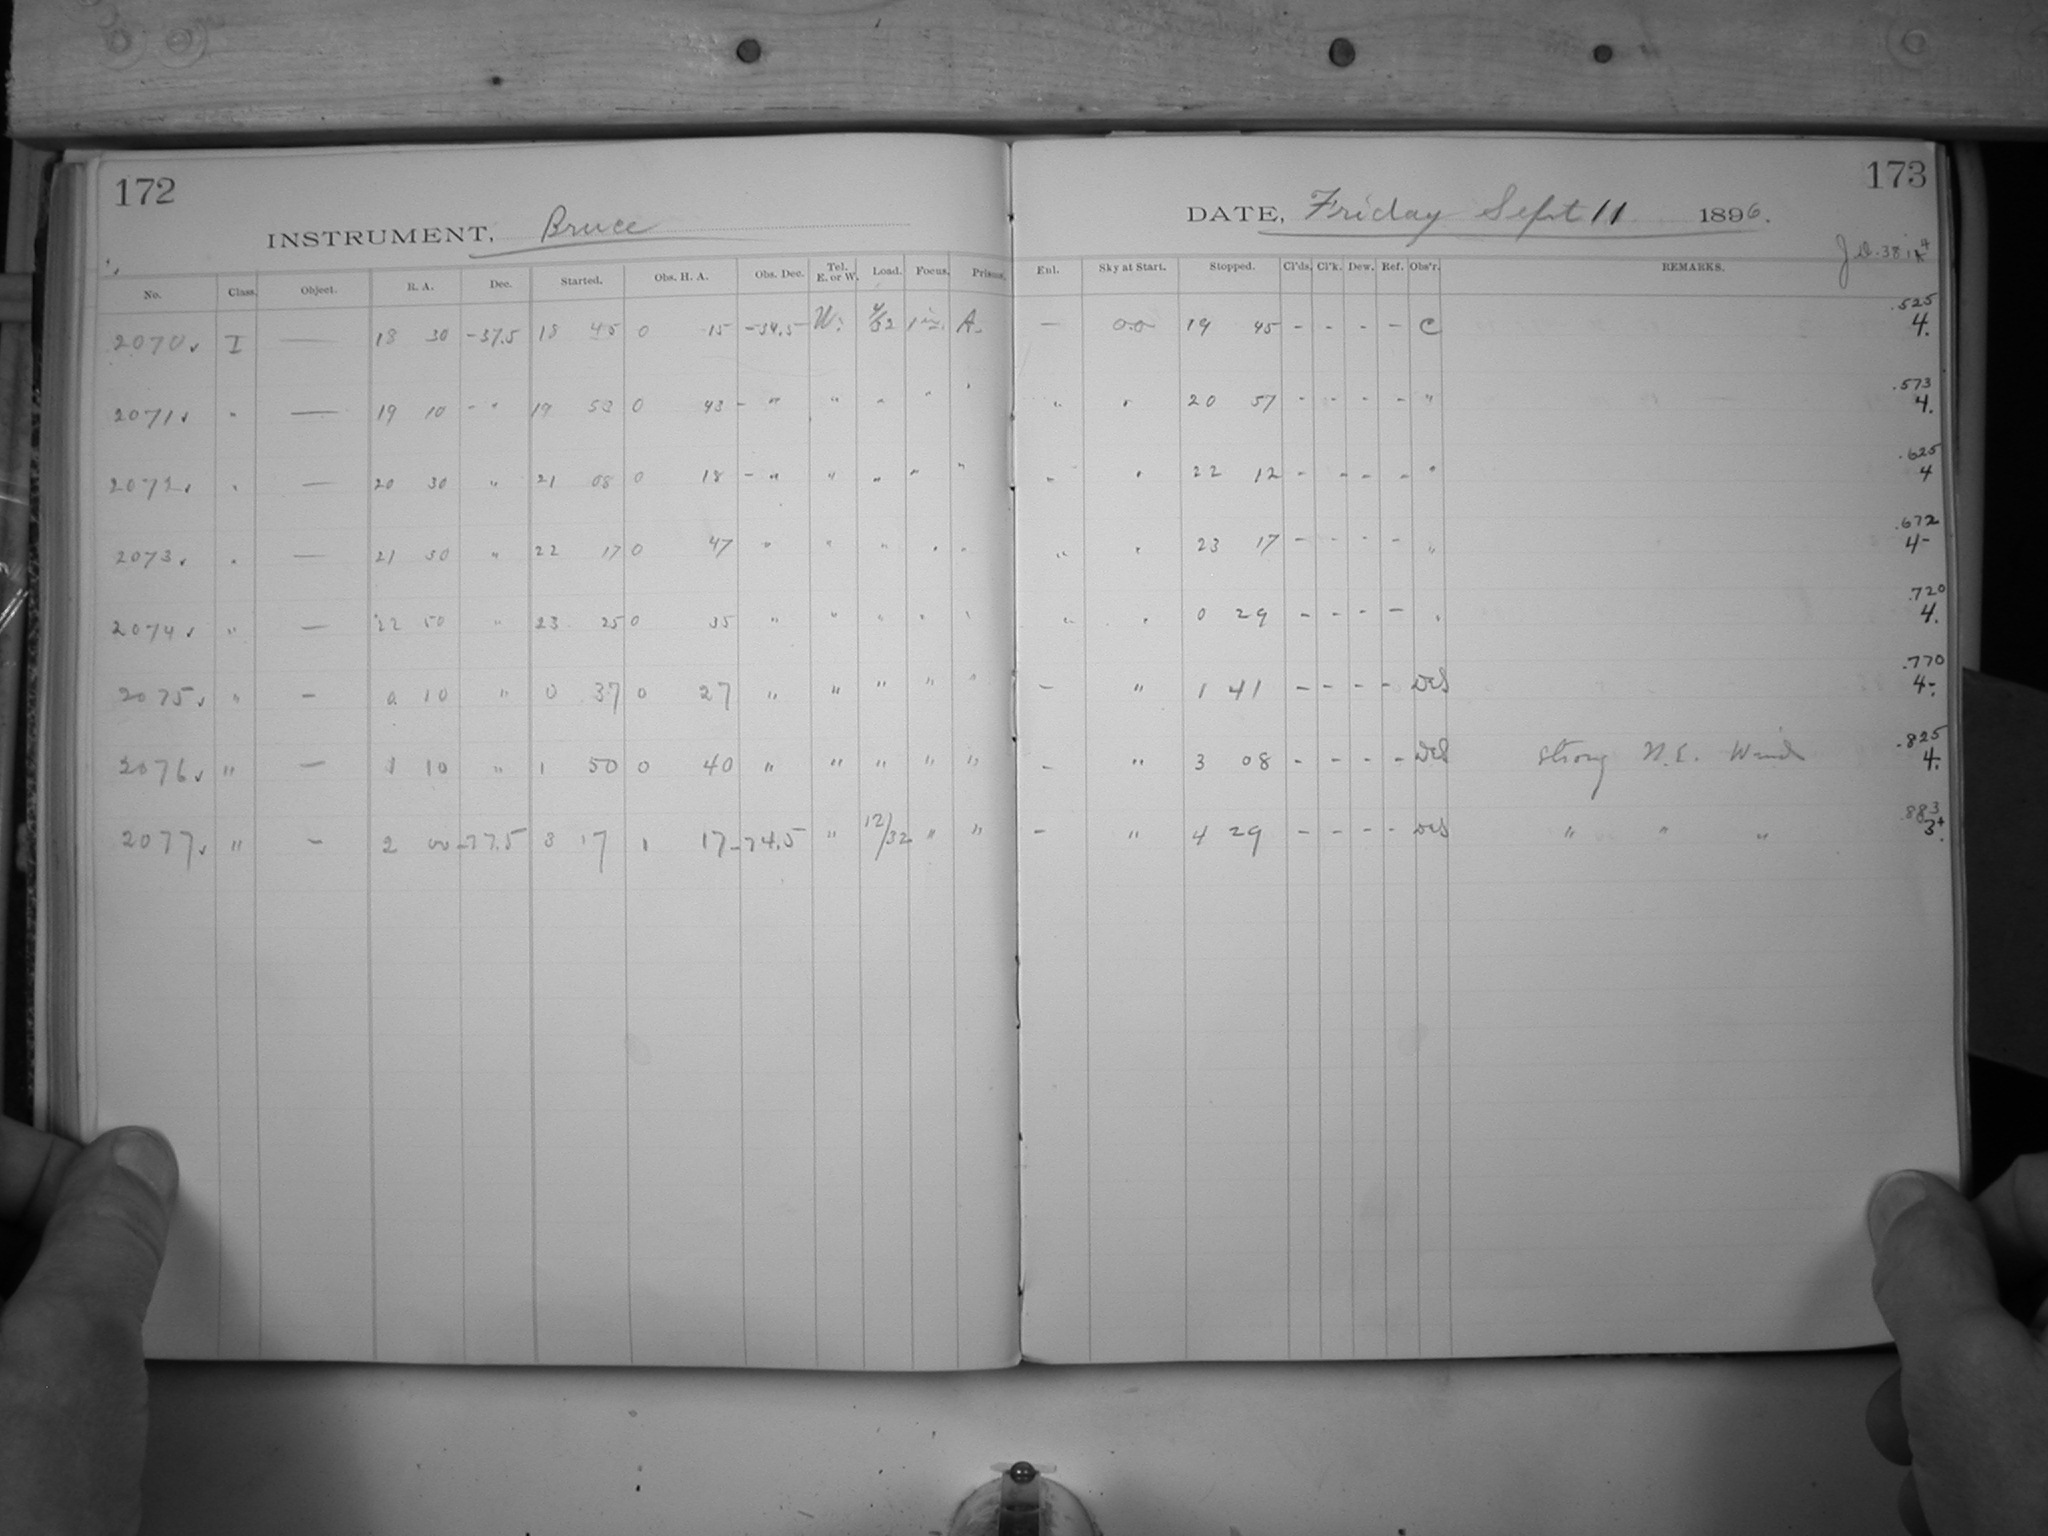 172
INSTRUMENT, Bruce
No. Class. Object. R. A. Dec. Started. Obs. H. A. Obs. Dec. Tel. E. or W. Load. Focus. Prisms.
2070 I — 18 30 -37.5 18 45 0 15 -34.5 W. 4/32 1 in. A.
2071 " — 19 10 - " 19 53 0 43 - " " " " "
2072 " — 20 30 " 21 08 0 18 - " " " " "
2073 " — 21 30 " 22 17 0 47 " " " " "
2074 " — 22 50 " 23 25 0 35 " " " " "
2075 " — 0 10 " 0 37 0 27 " " " " "
2076 " — 1 10 " 1 50 0 40 " " " " "
2077 " — 2 00 -77.5 3 17 1 17 -74.5 " 12/32 " "
173
DATE, Friday Sept 11 1896.
J.D. 38
Enl. Sky at Start. Stopped. Cl'ds. Cl'k. Dew. Ref. Obs'r. REMARKS.
— 0.0 19 45 - - - - C .525 4.
" " 20 57 - - - - " .573 4.
" " 22 12 - - - - " .625 4
" " 23 17 - - - - " .672 4-
" " 0 29 - - - - " .720 4.
— " 1 41 - - - - DeS .770 4-.
- " 3 08 - - - - DeS Strong N.E. Wind .825 4.
- " 4 29 - - - - DeS " " " .883 3+.